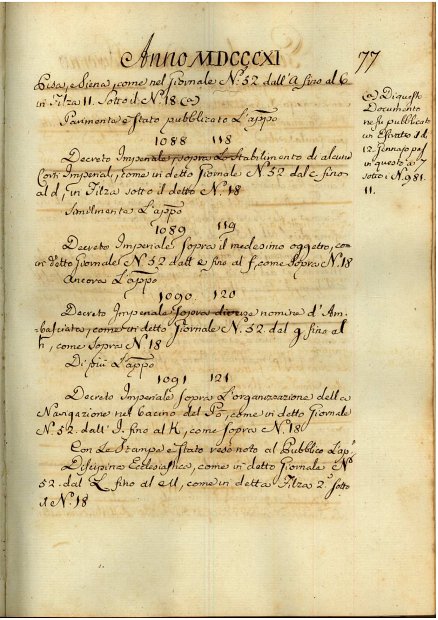 Anno MDCCCXI
77
Pisa, e Siena, come nel Giornale Nº. 52 dall' a fino al b
in Filza 11. Sotto il Nº. 18 (a)
Parimente è stato pubblicato L'appº
1088 118
Decreto Imperiale, sopra Lo Stabilimento di alcune
Corti Imperiali, come in detto Giornale Nº 52 dal c. fino
al d, in Filza sotto il detto Nº. 18
Similmente L'appº
1089 119
Decreto Imperiale sopra il medesimo oggetto, come
in detto Giornale Nº 52 dall' e fino al f, come sopra Nº 18
Ancora L'appº
1090. 120
Decreto Imperiale sopra diverse nomine d'Am-
basciata, come in detto Giornale Nº. 52. dal g fino al
h, come sopra Nº 18
Di più L'appº
1091 121
Decreto Imperiale sopra L'organizzazione della
Navigazione nel bacino del Pò, come in detto Giornale
Nº. 52. dall' I. fino al K, come sopra Nº. 18
Con Le Stampe è stato reso noto al Pubblico L'appº
Disciplina Ecclesiastica, come in detto Giornale Nº
52. dal L fino al M, come in detta Filza 2ª. Sotto
il Nº. 18
(a) Di questo
Documento
ne fu pubblicato
un Estratto Id
12 Gennaro
in questo a
sotto il Nº. 981.
11.